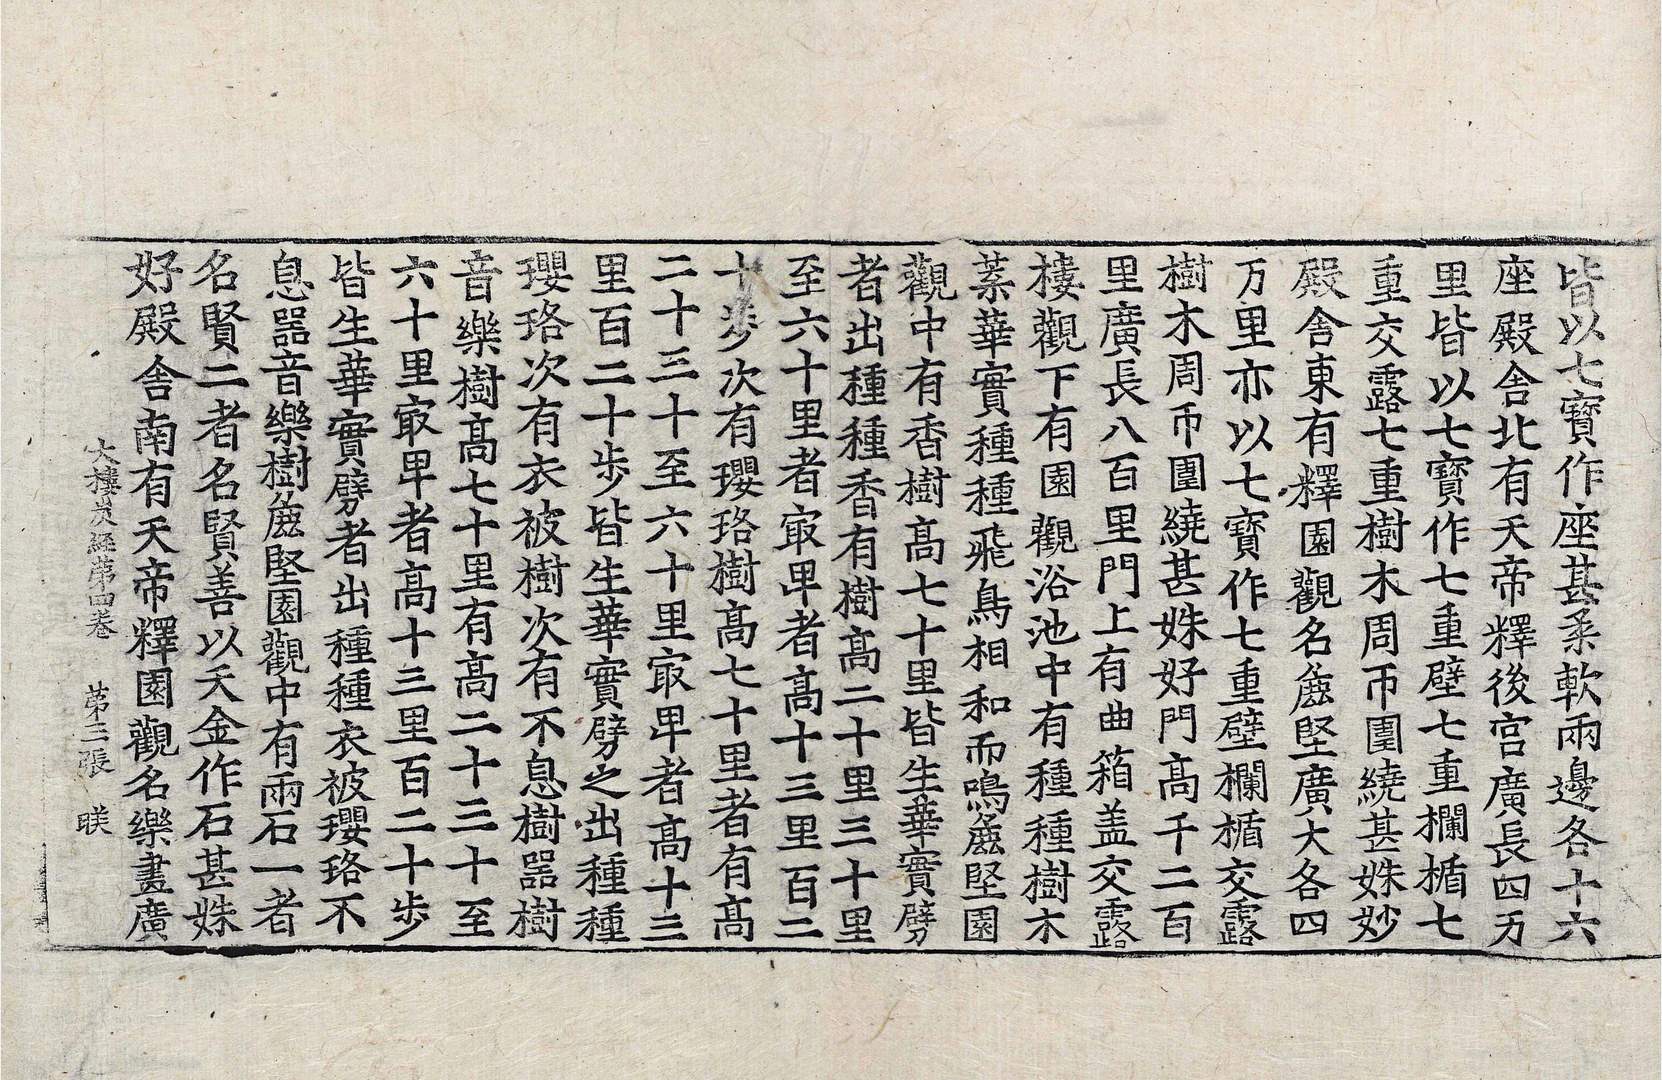 皆以七寶作座甚柔軟兩邊各十六
座殿舍北有天帝釋後宫廣長四万
里皆以七寶作七重壁七重欄楯七
重交露七重樹木周帀圍繞甚姝妙
殿舍東有釋園觀名麁堅廣大各四
万里亦以七寶作七重壁欄楯交露
樹木周帀圍繞甚姝好門高千二百
里廣長八百里門上有曲箱盖交露
樓觀下有園觀浴池中有種種樹木
葉華實種種飛鳥相和而鳴麁堅園
觀中有香樹高七十里皆生華實劈
者出種種香有樹高二十里三十里
至六十里者㝡卑者高十三里百二
十步次有瓔珞樹高七十里者有高
二十三十至六十里㝡卑者高十三
里百二十步皆生華實劈之出種種
瓔珞次有衣被樹次有不息樹器樹
音樂樹高七十里有高二十三十至
六十里㝡卑者高十三里百二十步
皆生華實劈者出種種衣被瓔珞不
息器音樂樹麁堅園觀中有兩石一者
名賢二者名賢善以天金作石甚姝
好殿舍南有天帝釋園觀名樂畫廣
大樓炭經苐四卷 苐三張 昃